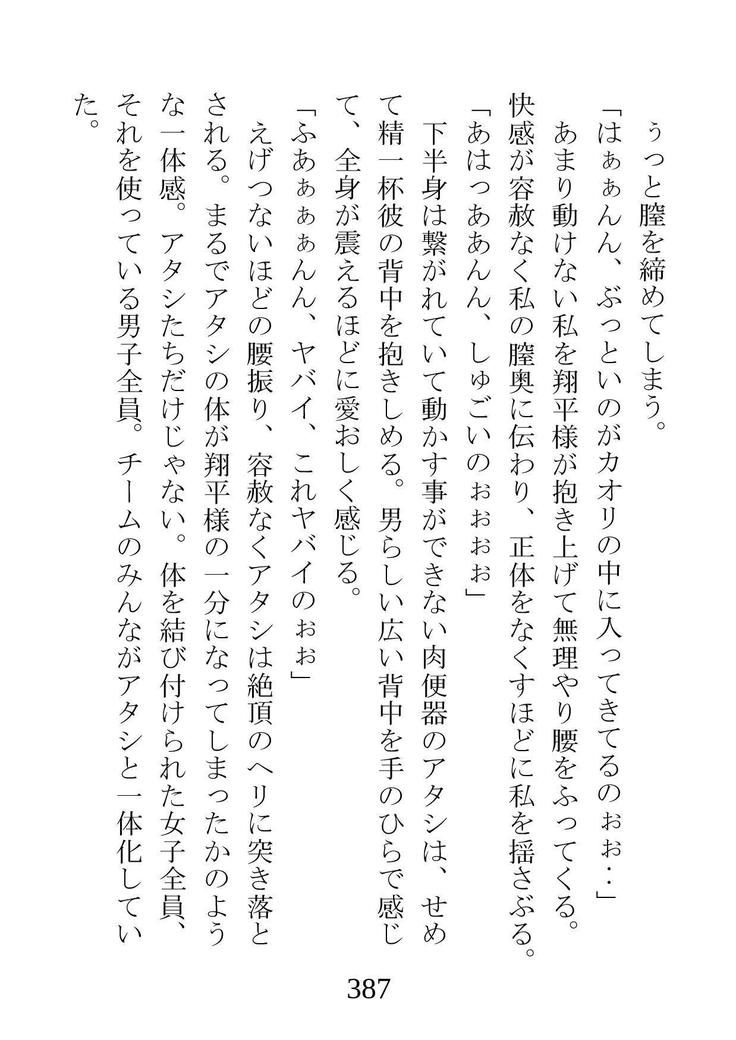 うっと膣を締めてしまう。
「はぁぁんん、ぶっといのがカオリの中に入ってきてるのぉぉ‥」
　あまり動けない私を翔平様が抱き上げて無理やり腰をふってくる。
快感が容赦なく私の膣奥に伝わり、正体をなくすほどに私を揺さぶる。
「あはっああんん、しゅごいのぉぉぉぉ」
　下半身は繋がれていて動かす事ができない肉便器のアタシは、せめ
て精一杯彼の背中を抱きしめる。男らしい広い背中を手のひらで感じ
て、全身が震えるほどに愛おしく感じる。
「ふあぁぁぁんん、ヤバイ、これヤバイのぉぉ」
　えげつないほどの腰振り、容赦なくアタシは絶頂のヘリに突き落と
される。まるでアタシの体が翔平様の一分になってしまったかのよう
な一体感。アタシたちだけじゃない。体を結び付けられた女子全員、
それを使っている男子全員。チームのみんながアタシと一体化してい
た。
387